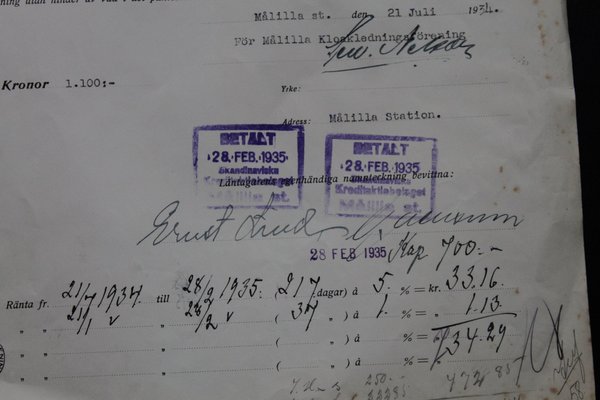 Målilla st. den 21 Juli 1934.
För Målilla Kloakledningsförening
Kronor 1.100:-
Yrke:
Adress: Målilla Station.
BETALT
28. FEB. 1935
Skandinaviska
Kreditaktiebolaget
Målilla st.
BETALT
28. FEB. 1935
Skandinaviska
Kreditaktiebolaget
Målilla st.
Låntagarens egenhändiga namnteckning bevittna:
Ernst
28 FEB 1935 Kap 700:-
Ränta fr. 21/7 1934. till 28/2 1935. (217 dagar) à 5. % = kr. 33.16
21/1 v " 28/2 v ( 37 " ) à 1. % = " 1.13
" " " ( " ) à % = " 34.29
" " " ( " ) à % = "
250.-
772 85